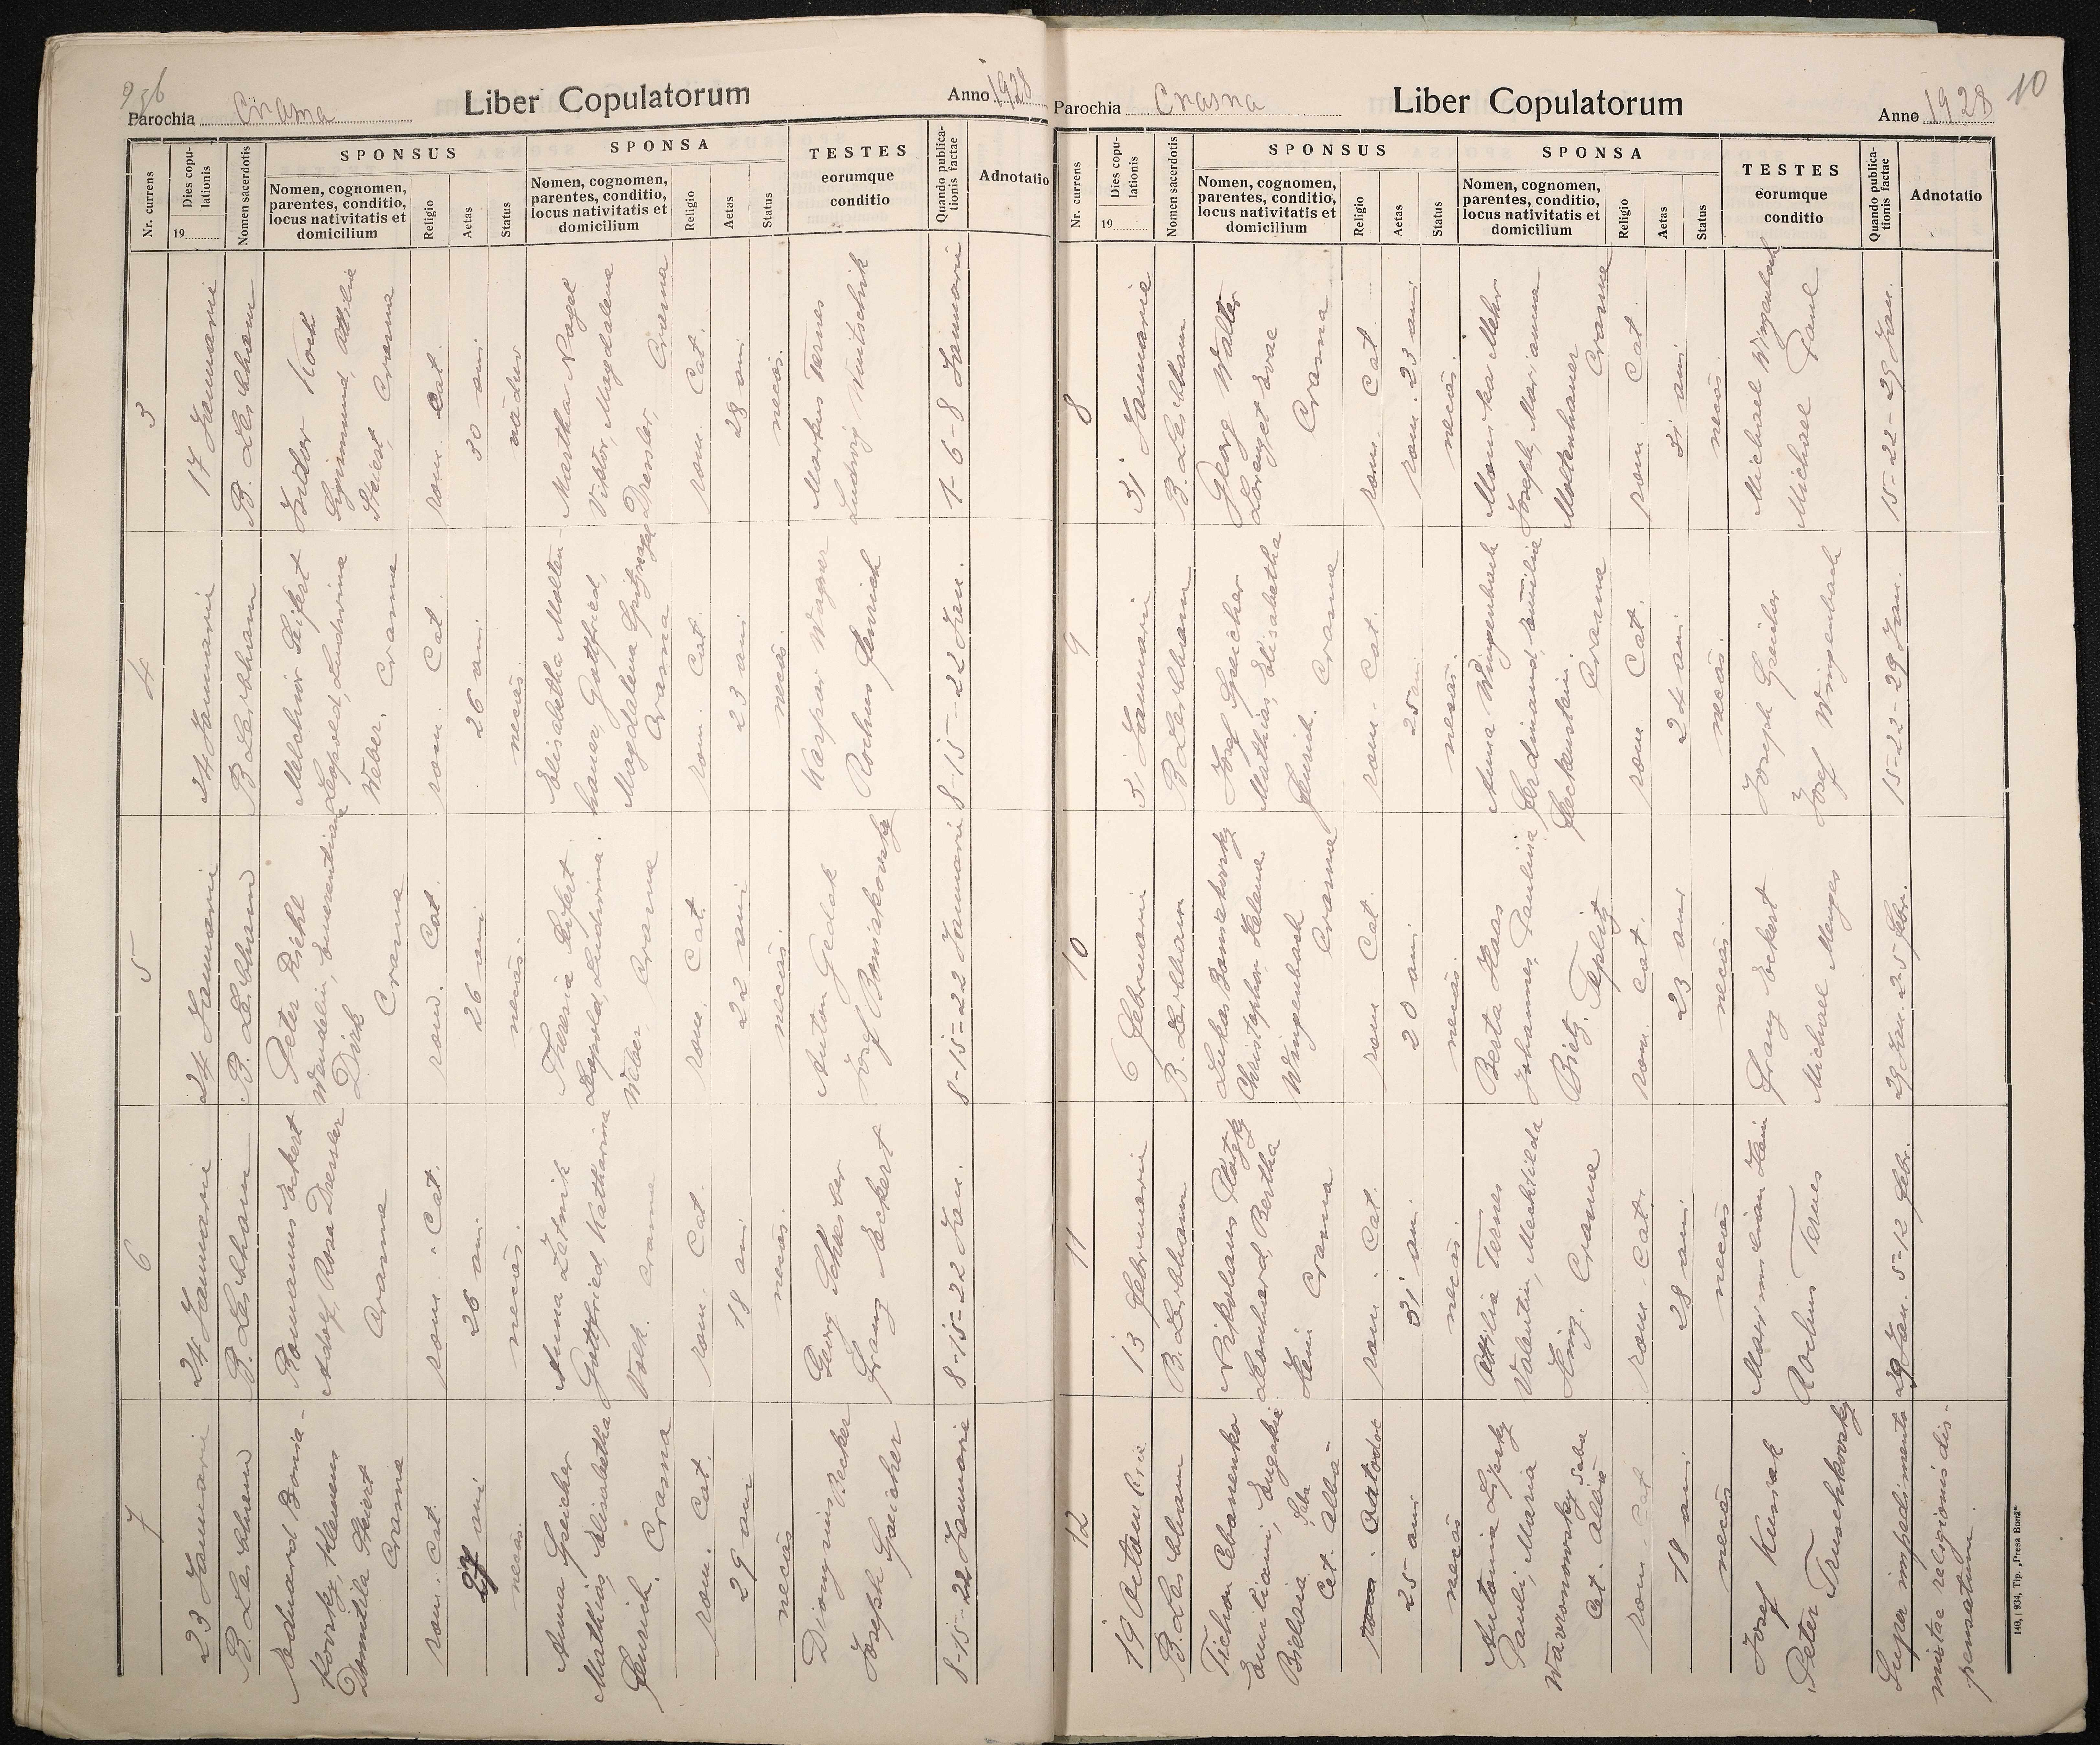 9 36
Parochia Crasna
Liber Copulatorum
Anno 1928
Nr. currens
Dies copu-
lationis
19
Nomen sacerdotis
SPONSUS
Nomen, cognomen,
parentes, conditio,
locus nativitatis et
domicilium
Religio
Aetas
Status
SPONSA
Nomen, cognomen,
parentes, conditio,
locus nativitatis et
domicilium
Religio
Aetas
Status
TESTES
eorumque
conditio
Quando publica-
tionis factae
Adnotatio
3
17 Januarii
B. Leibham
Isidor Koch
Sigismund, Ottilie
Steiert, Crasna
rom. Cat.
30 ani
văduv
Martha Nagel
Viktor, Magdalena
Dressler, Crasna
rom. Cat.
28 ani
necăs.
Markus Ternes
Ludwig Nuitschnik
1-6-8 Januarii
4
24 Januarii
B Leibham
Melchior Seifert
Leopold, Ludwina
Weber. Crasna
rom. Cat.
26 ani
necăs.
Elisabetha Molten-
hauer, Gottfried,
Magdalena
Crasna
rom. Cat.
23 ani
necăs.
Kaspar Wagner
Rochus Fenrich
8-15-22 Jan.
5
24 Januarii
B. Leibham
Peter Riehl
Wendelin, Emerentiana
Dirk
Crasna
rom. Cat.
26 ani
necăs.
Theresia Seifert
Leopold, Ludwina.
Weber, Crasna
rom. Cat.
22 ani
necăs.
Anton Gedak
Josef Boniakowsky
8-15-22 Januarii
6
24 Januarii
B. Leibham
Romanus Eckert
Adolf, Rosa Dressler
Crasna
rom. Cat.
26 ani
necăs.
Anna Zotnik
Gottfried, Katharina
Volk. Crasna
rom. Cat.
18 ani
necăs.
Georg Schuster
Franz Eckert
8-15-22 Jan.
7
23 Januarii
B. Leibham
Eduard Bonia-
kowsky, Klemens
Domitila Steiert
Crasna
rom. Cat.
27 ani
necăs.
Anna Speicher
Mathias Elisabetha
Fenrich. Crasna
rom. Cat.
29 ani
necăs
Dionysius Becker
Joseph Speicher
8-15-22 Januarii
10
Parochia Crasna
Liber Copulatorum
Anno 1928
Nr. currens
Dies copu-
lationis
19
Nomen sacerdotis
SPONSUS
Nomen, cognomen,
parentes, conditio,
locus nativitatis et
domicilium
Religio
Aetas
Status
SPONSA
Nomen, cognomen,
parentes, conditio,
locus nativitatis et
domicilium
Religio
Aetas
Status
TESTES
eorumque
conditio
Quando publica-
tionis factae
Adnotatio
8
31 Januarie
B. Leibham
Georg Walter
Lorenz et Evae
Crasna
rom. Cat
rom. 23 ani
necăs.
Monika Mehr
Joseph, Marianna
Moltenhauer
Crasna
rom. Cat.
31 ani
necăs.
Michael Wingenbach
Michael Paul
15-22-29 Jan.
9
31 Januarii
B Leibham
Josef Speicher
Mathias, Elisabetha
Fenrich. Crasna
rom. Cat.
25 ani
necăs.
Anna Wingenbach
Ferdinand, Emilia
Heckenstein.
Crasna
rom Cat.
24 ani
necăs.
Joseph Speicher
Josef Wingenbach
15-22-29 Jan.
10
6 Februarii
B. Leibham
Lukas Boniakowsky
Christophor, Helena
Wingenbach
Crasna
rom Cat.
20 ani
necăs.
Berta Haas
Johannes, Paulina
Bietz. Teplitz
rom. Cat.
23 ani
necăs.
Franz Eckert
Michael Menges
29 Jan. 2-5 Febr.
11
13 Februarii
B. Leibham
Nikolaus Plotzky
Leonhard, Bertha
Hein Crasna
rom. Cat.
31 ani.
necăs.
Ottilia Ternes
Valentin, Mechtilda
Hinz. Crasna
rom. Cat.
28 ani
necăs
Maximilian Hein
Rochus Ternes
29 Jan. 5-12 Febr.
12
19 Octombrie
B. Leibham
Tichon Ebanenko
Emiliani, Eugenie
Bielaia. Saba
Cet. Albă-
rom. Ortodox
25 ani
necăs
Antonia Lipsky
Pauli, Maria
Wavronowsky Saba
Cet. Albă-
rom. Cat
18 ani
necăs
Josef Kuniak
Peter Truschkowsky
Super impedimento
mixtae religionis dis-
pensatum.
140, 1934, Tip. „Presa Bună"